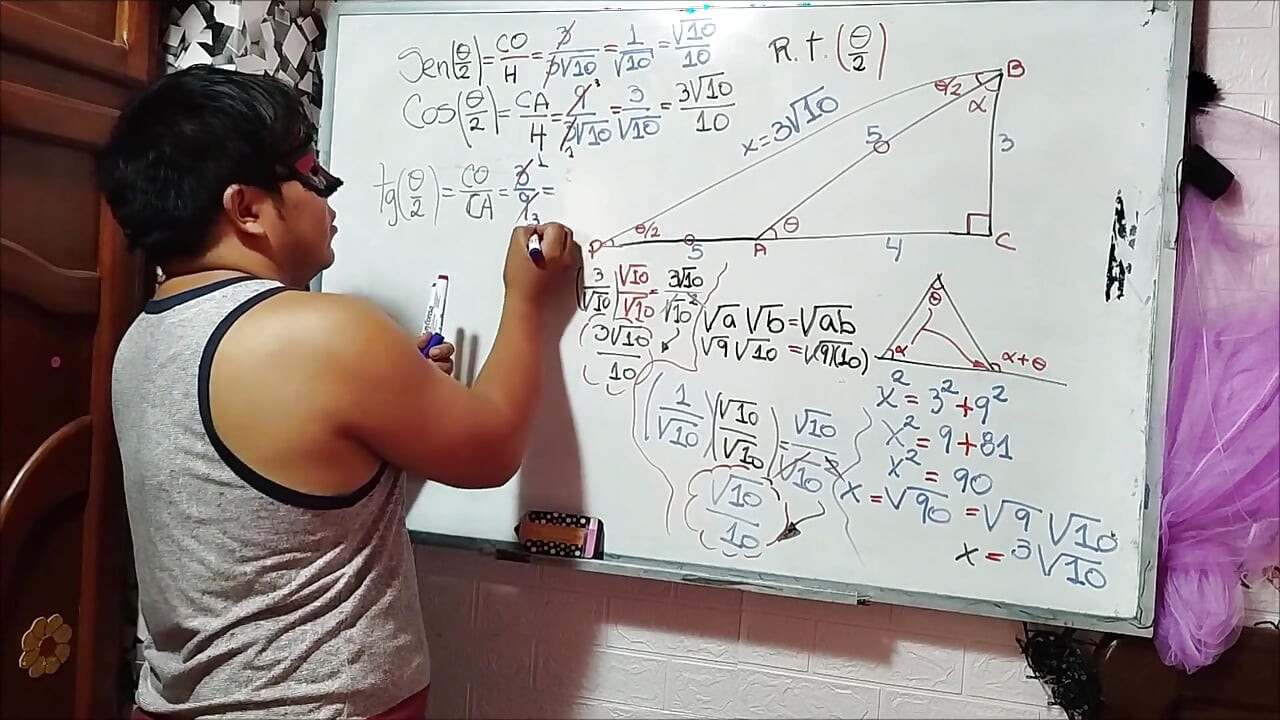 Sen(θ/2) = CO/H = 3/3√10 = 1/√10 = √10/10
R.T.(θ/2)
Cos(θ/2) = CA/H = 9³/3₁√10 = 3/√10 = 3√10/10
tg(θ/2) = CO/CA = 3¹/9₃ =
B
θ/2
α
x=3√10
5
3
θ/2
θ
P
5
A
4
C
(3/√10)(√10/√10) = 3√10/√10²
3√10/10
√a √b = √ab
√9 √10 = √(9)(10)
θ
α
α+θ
(1/√10)(√10/√10) = √10/√10²
√10/10
x² = 3² + 9²
x² = 9 + 81
x² = 90
x = √90 = √9 √10
x = 3√10